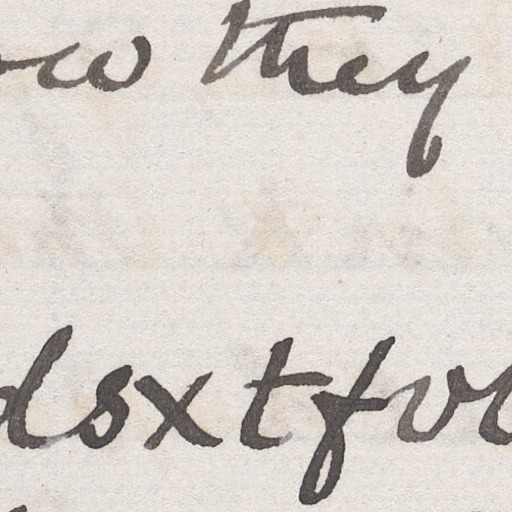 they
dsxtfv